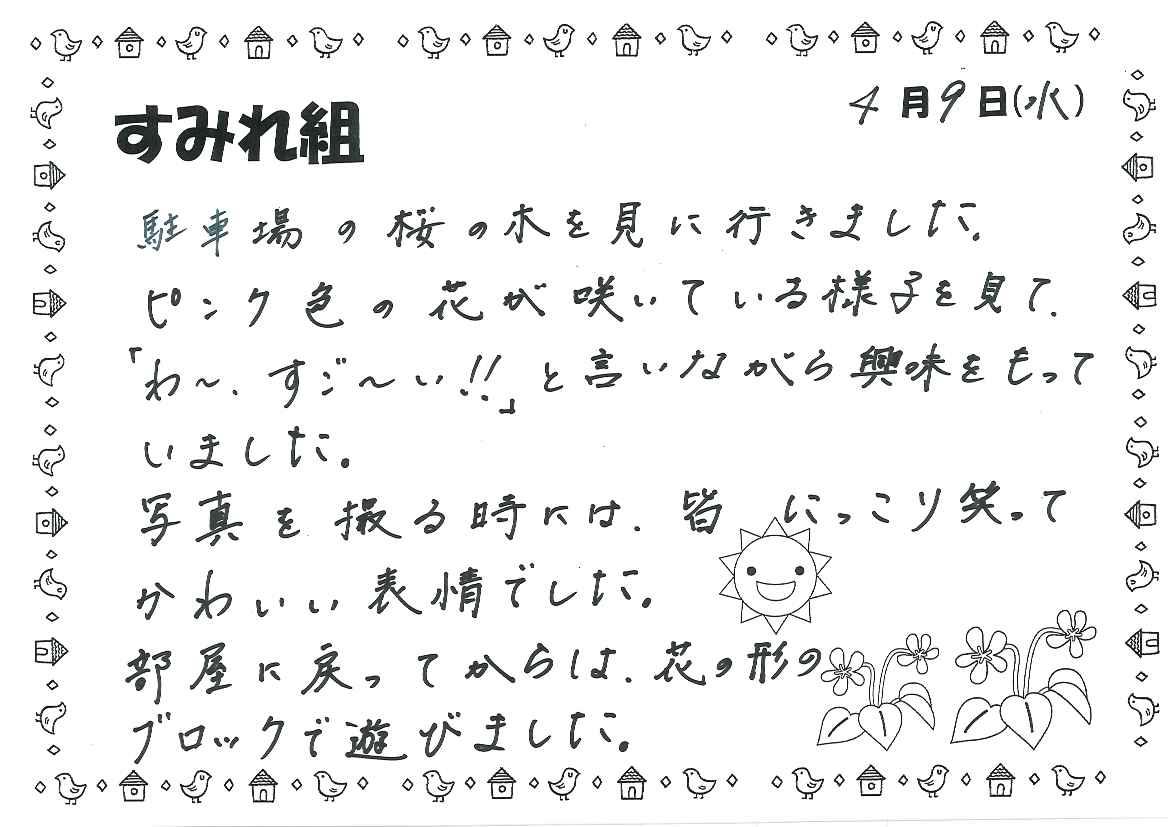 4月9日(水)
すみれ組
駐車場の桜の木を見に行きました。
ピンク色の花が咲いている様子を見て、
「わ〜、すご〜い!!」と言いながら興味をもって
いました。
写真を撮る時には、皆 にっこり笑って
かわいい表情でした。
部屋に戻ってからは、花の形の
ブロックで遊びました。